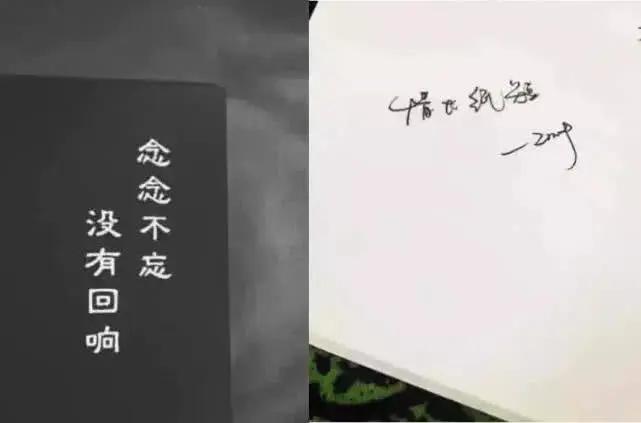 念念不忘
没有回响
情长纸短